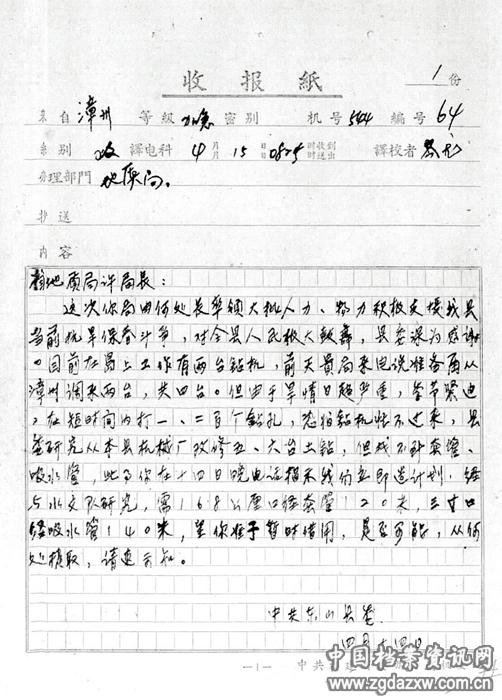 收报纸
1份
来自 漳州 等级 加急 密别 机号 544 编号 64
系别 收 譯电科 4月15日 0825 时收到 时送出 譯校者
办理部門 地质局。
抄送
内容
省地质局许局長：
这次你局由何处長率领大批人力、物力积极支援我县
当前抗旱保春斗争，对全县人民极大鼓舞，县委深为感谢
。目前在島上工作有两台钻机，前天贵局来电说准备再从
漳州调来两台，共四台。但由于旱情日趋严重，季节紧迫
，在短时间内打一、二百个钻孔，恐怕钻机忙不过来，县
委研究从本县机械厂改修五、六台土钻，但成孔缺套管、
吸水管，此事你在十四日晚电话指示我们立即造计划，经
与水文队研究，需168公厘口径套管120米，三寸口
径吸水管140米，望你准予暂时借用，是否可能，从何
处提取，请速示知。
中共东山县委
四月十四日
—1—
中共
中国档案资讯网
www.zgdazxw.com.cn